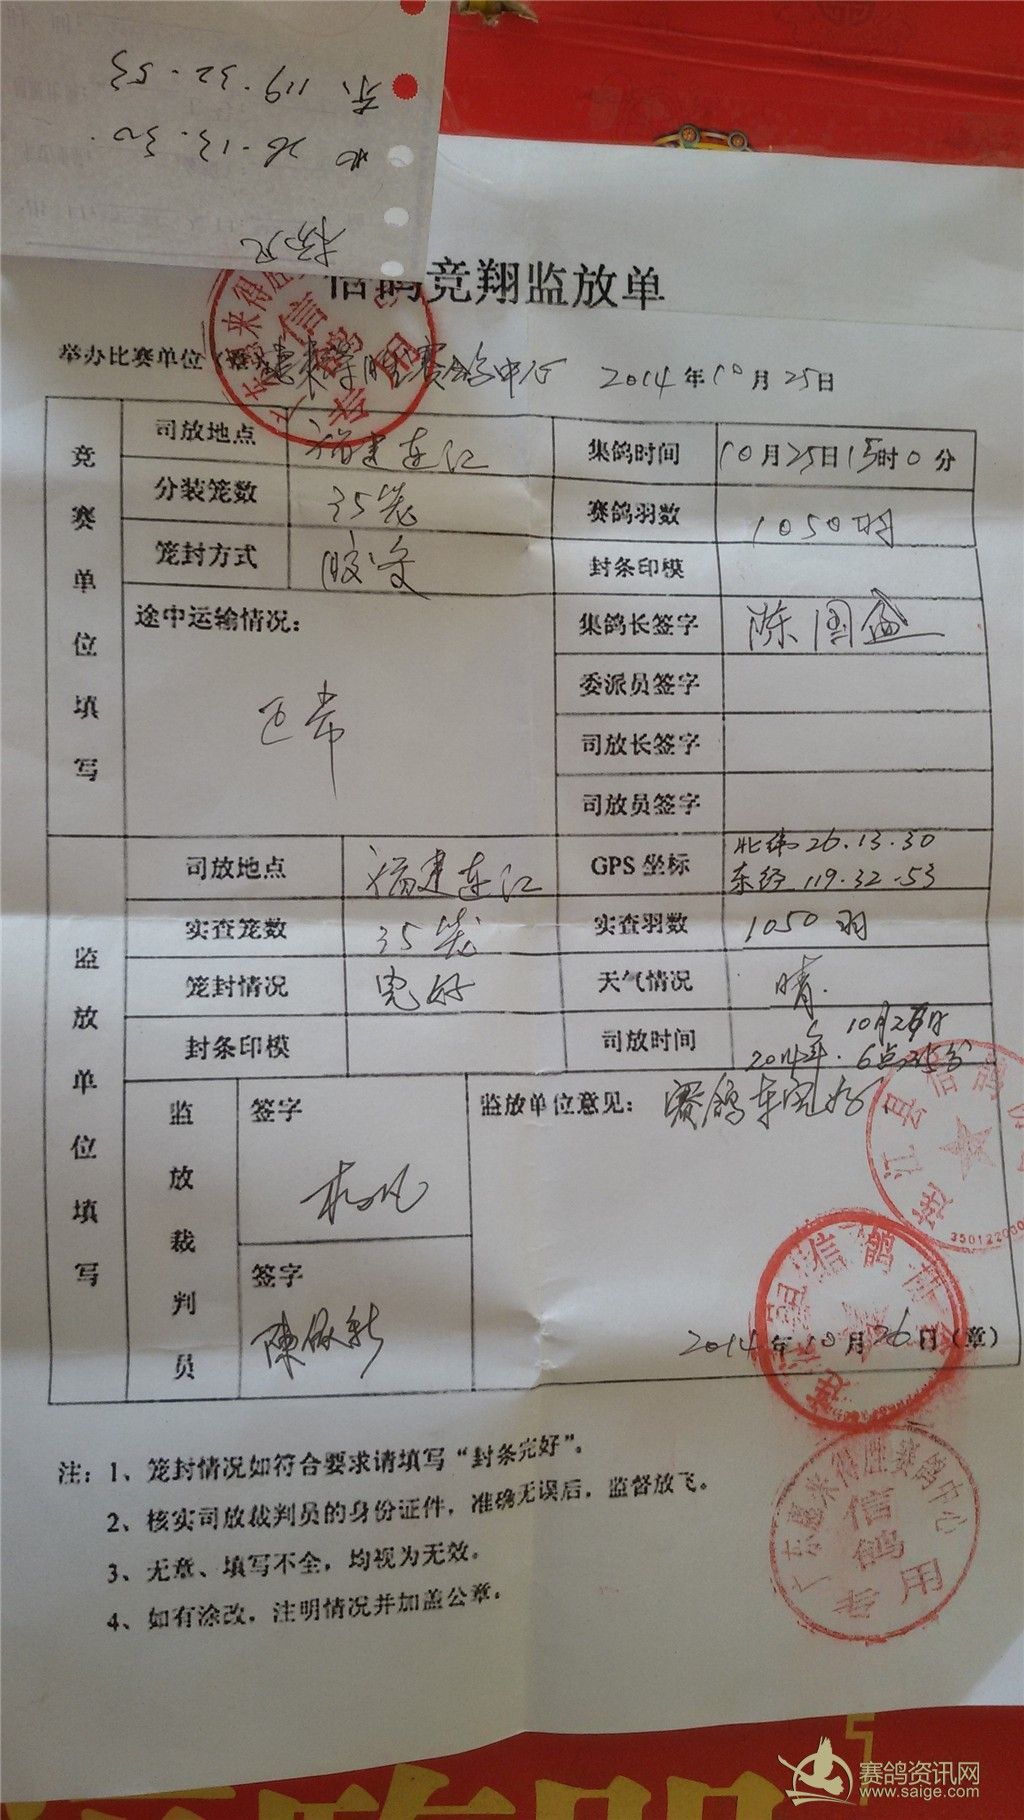 东 119.32.53
北 26.13.30
杨凡
信鸽竞翔监放单
举办比赛单位(章) 来得胜赛鸽中心 2014年10月25日
竞赛单位填写
司放地点 福建连江 集鸽时间 10月25日15时0分
分装笼数 35笼 赛鸽羽数 1050羽
笼封方式 胶 封条印模
途中运输情况: 正常
集鸽长签字 陈国盛
委派员签字
司放长签字
司放员签字
监放单位填写
司放地点 福建连江 GPS 坐标 北纬26.13.30
东经119.32.53
实查笼数 35笼 实查羽数 1050羽
笼封情况 完好 天气情况 晴.
封条印模 司放时间 2014年10月26日
6点 分
监放裁判员
签字 杨凡
签字 陳
监放单位意见: 赛鸽车完好
2014年10月26日(章)
注: 1、笼封情况如符合要求请填写“封条完好”。
2、核实司放裁判员的身份证件,准确无误后,监督放飞。
3、无章、填写不全,均视为无效。
4、如有涂改,注明情况并加盖公章。
连江县信鸽协
350122030
连江县信鸽协会
广东 来得胜赛鸽中心
信鸽
专用
赛鸽资讯网
www.saige.com